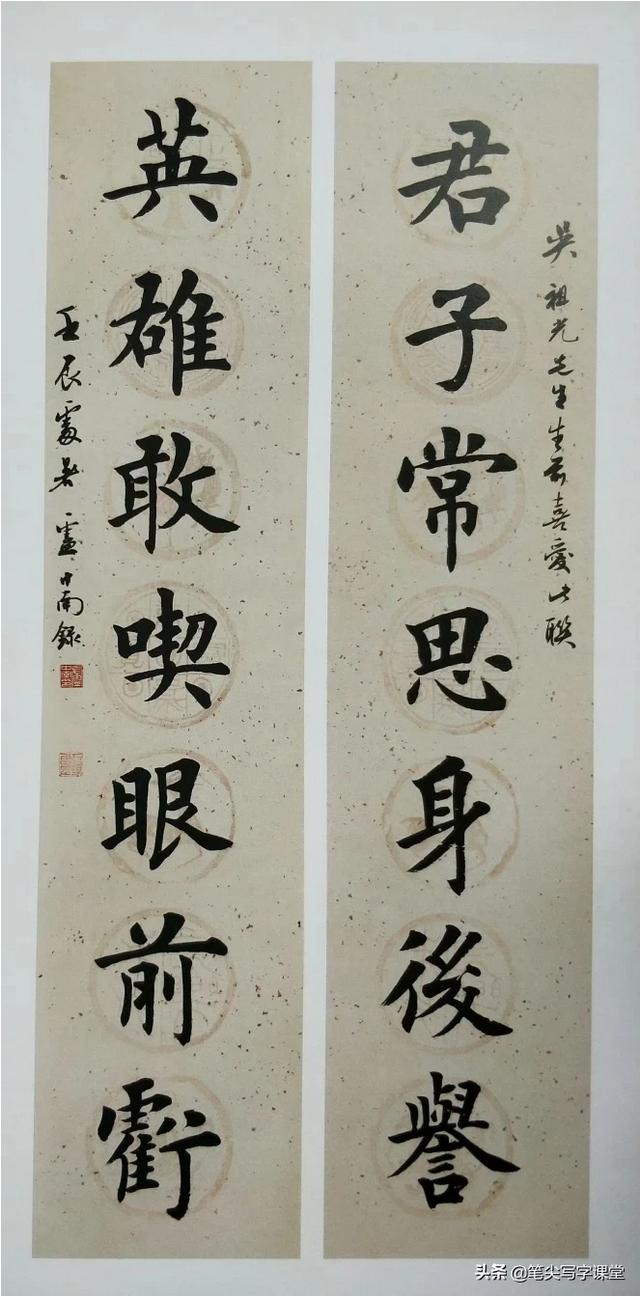 吴祖光先生生前喜愛此聯
君子常思身後譽
英雄敢喫眼前虧
壬辰處暑盧中南錄
头条 @笔尖写字课堂